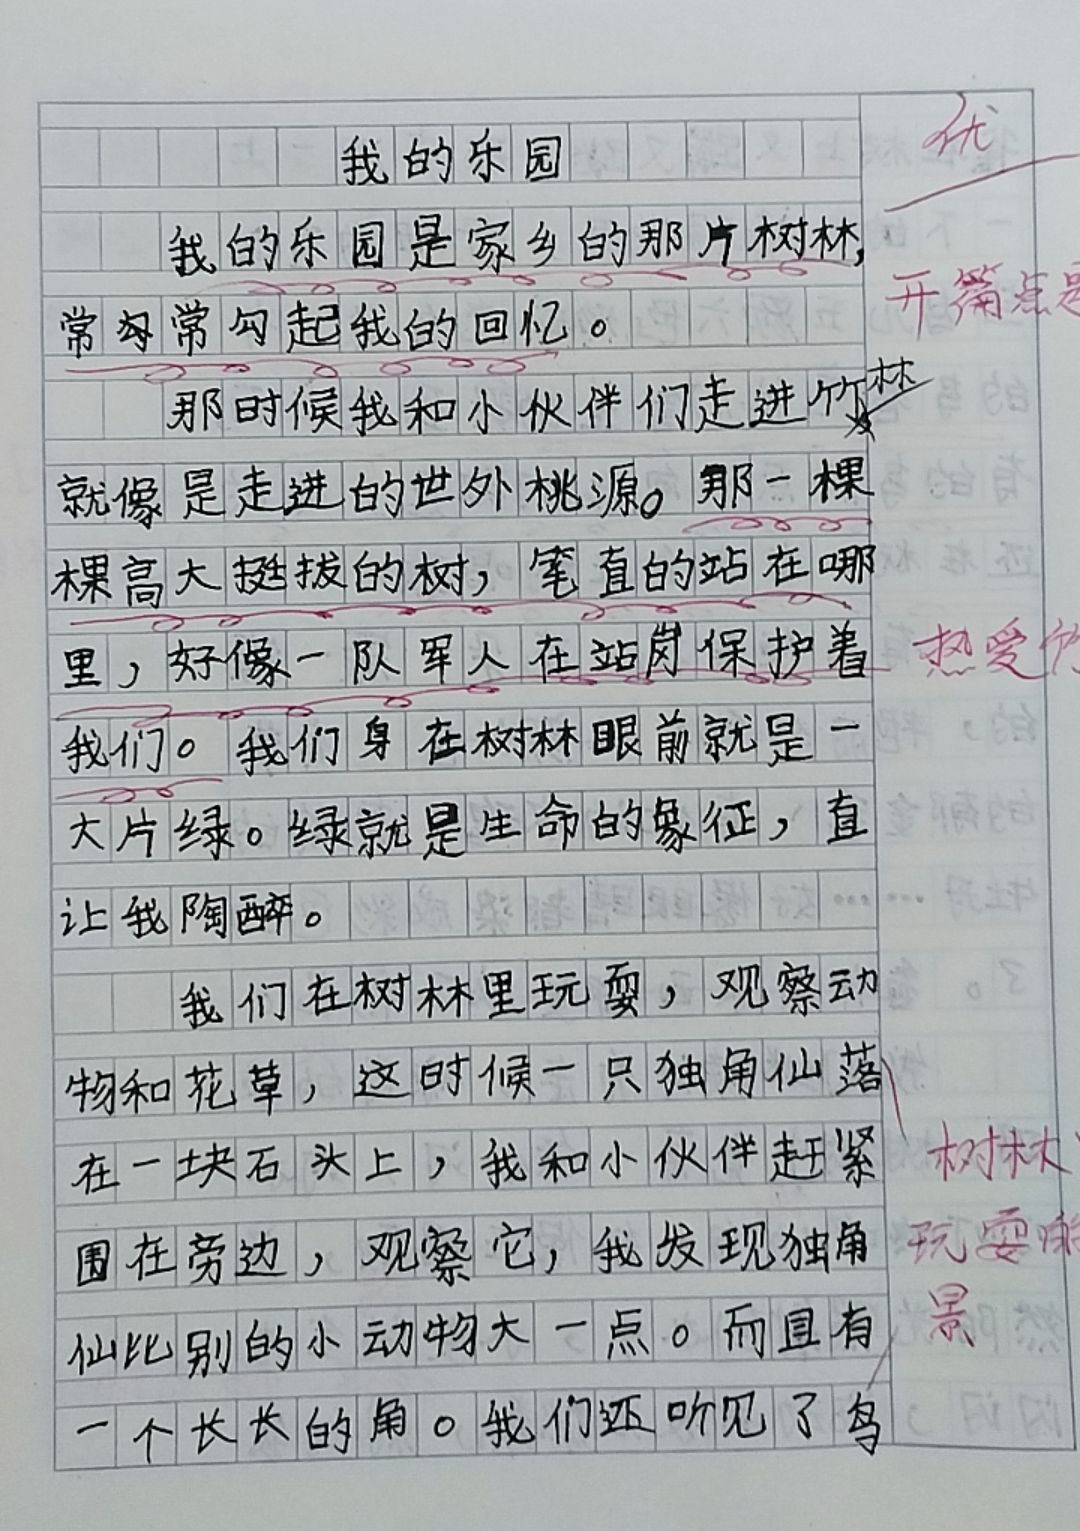 我的乐园
优
我的乐园是家乡的那片树林,
开篇点题
常勾常勾起我的回忆。
那时候我和小伙伴们走进竹林
就像是走进的世外桃源。那一棵
棵高大挺拔的树,笔直的站在哪
里,好像一队军人在站岗保护着
热爱
我们。我们身在树林眼前就是一
大片绿。绿就是生命的象征,直
让我陶醉。
我们在树林里玩耍,观察动
物和花草,这时候一只独角仙落
在一块石头上,我和小伙伴赶紧
树林
围在旁边,观察它,我发现独角
玩耍
仙比别的小动物大一点。而且有
景
一个长长的角。我们还听见了鸟